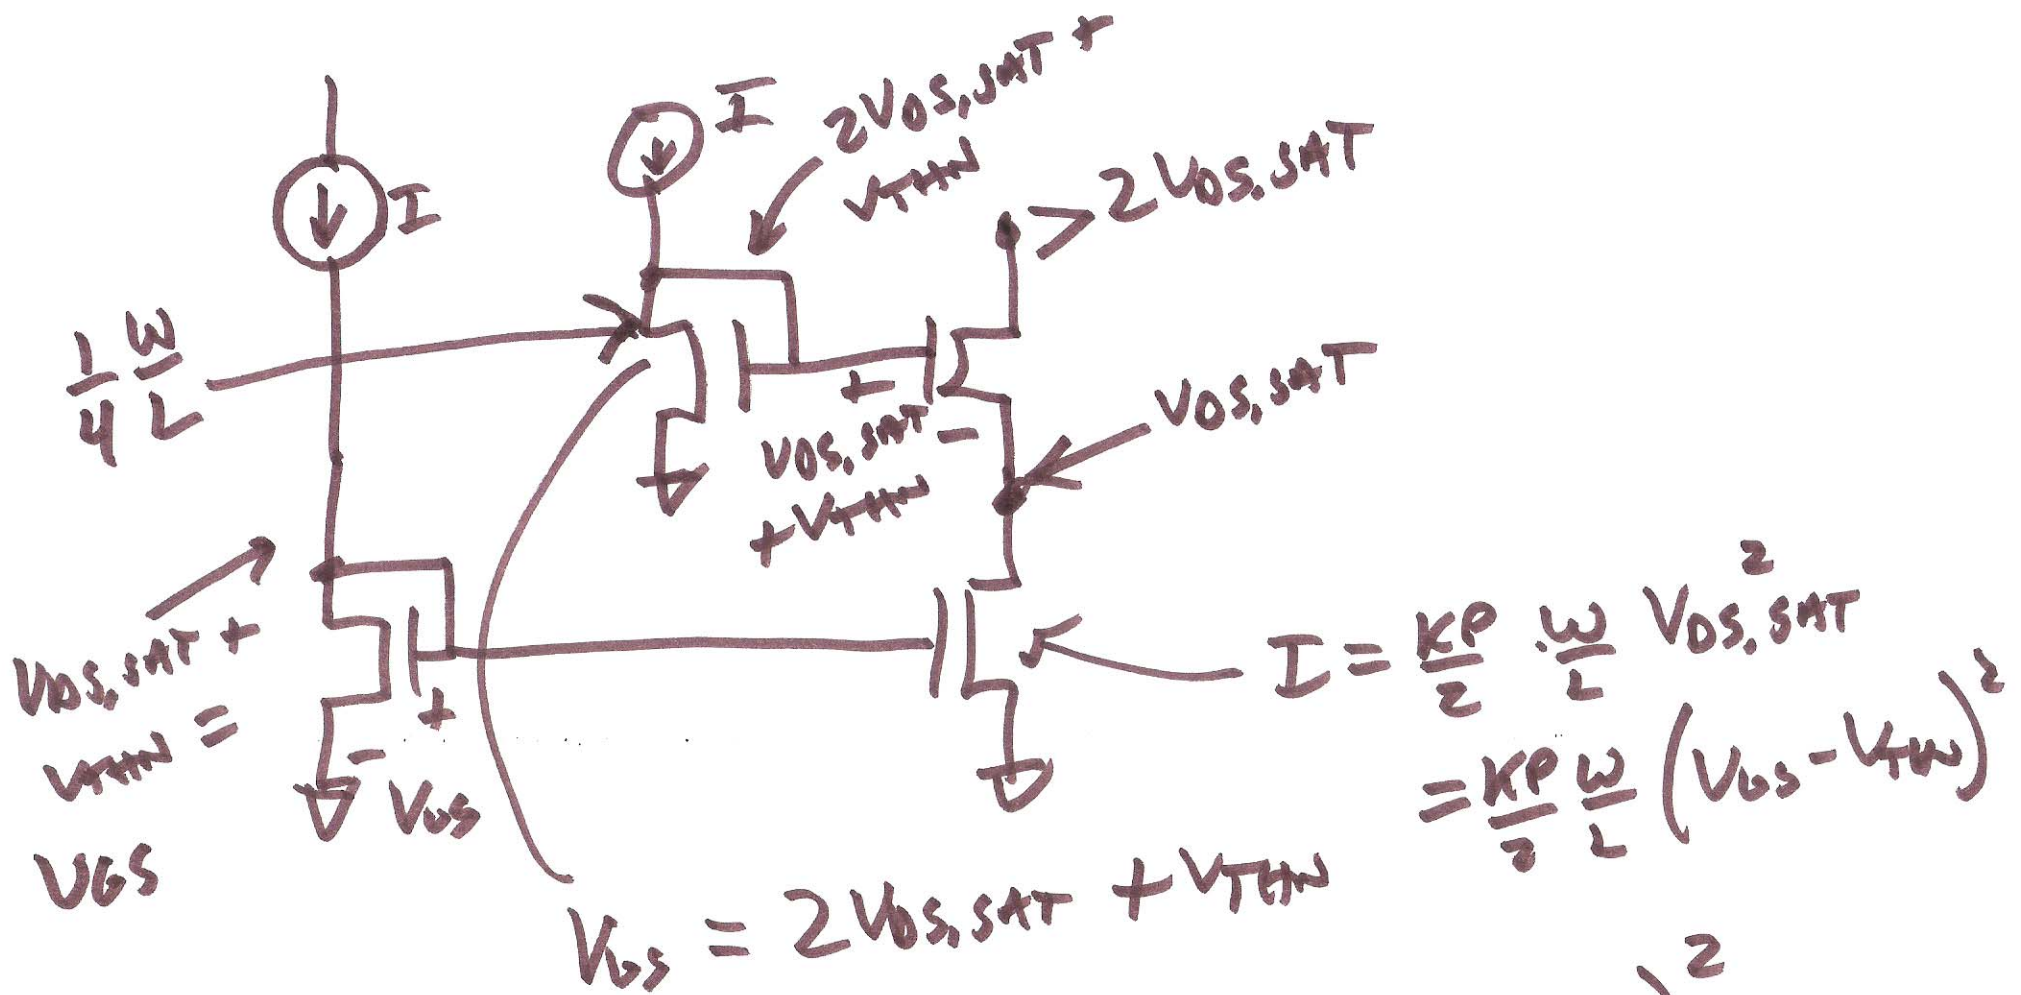 I
I
2VDS,SAT +
VTHN
> 2VDS,SAT
1/4 W/L
+
VDS,SAT
-
+VTHN
VDS,SAT
VDS,SAT +
VTHN =
VGS
+
-
VGS
I = KP/2 · W/L VDS,SAT²
= KP/2 W/L (VGS - VTHN)²
VGS = 2VDS,SAT + VTHN
)²